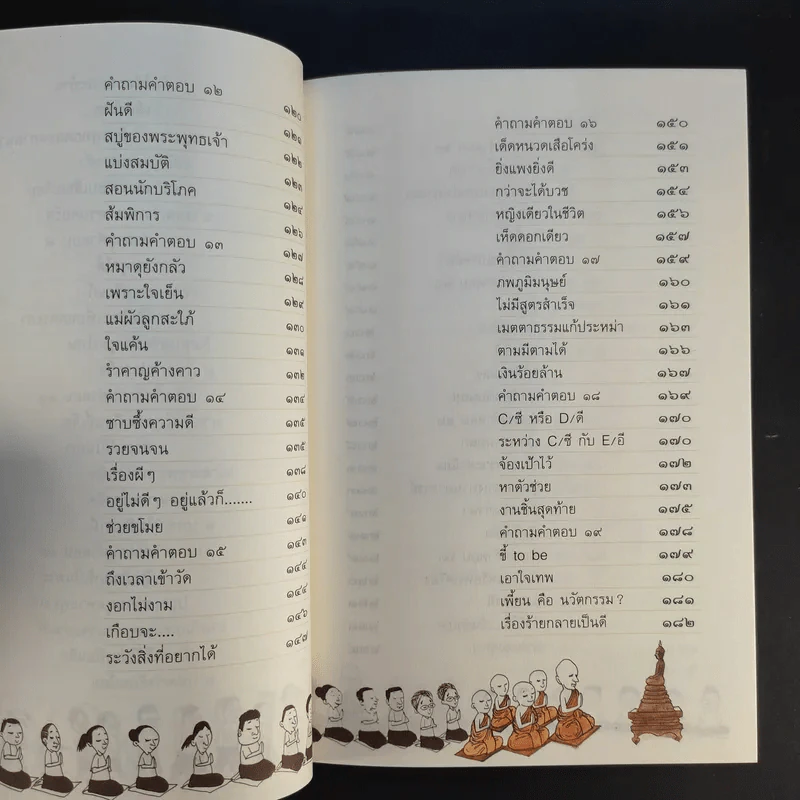 คำถามคำตอบ ๑๒ ๑๒๐
ฝันดี ๑๒๑
สบู่ของพระพุทธเจ้า ๑๒๒
แบ่งสมบัติ ๑๒๓
สอนนักบริโภค ๑๒๔
ส้มพิการ ๑๒๖
คำถามคำตอบ ๑๓ ๑๒๗
หมาดุยังกลัว ๑๒๘
เพราะใจเย็น ๑๒๙
แม่ผัวลูกสะใภ้ ๑๓๐
ใจแค้น ๑๓๑
รำคาญค้างคาว ๑๓๒
คำถามคำตอบ ๑๔ ๑๓๔
ซาบซึ้งความดี ๑๓๕
รวยจนจน ๑๓๕
เรื่องผีๆ ๑๓๘
อยู่ไม่ดีๆ อยู่แล้วก็....... ๑๔๐
ช่วยขโมย ๑๔๑
คำถามคำตอบ ๑๕ ๑๔๓
ถึงเวลาเข้าวัด ๑๔๔
งอกไม่งาม ๑๔๔
เกือบจะ.... ๑๔๖
ระวังสิ่งที่อยากได้ ๑๔๗
คำถามคำตอบ ๑๖ ๑๕๐
เด็ดหนวดเสือโคร่ง ๑๕๑
ยิ่งแพงยิ่งดี ๑๕๓
กว่าจะได้บวช ๑๕๔
หญิงเดียวในชีวิต ๑๕๖
เห็ดดอกเดียว ๑๕๗
คำถามคำตอบ ๑๗ ๑๕๙
ภพภูมิมนุษย์ ๑๖๐
ไม่มีสูตรสำเร็จ ๑๖๑
เมตตาธรรมแก้ประหม่า ๑๖๓
ตามมีตามได้ ๑๖๖
เงินร้อยล้าน ๑๖๗
คำถามคำตอบ ๑๘ ๑๖๙
C/ซี หรือ D/ดี ๑๗๐
ระหว่าง C/ซี กับ E/อี ๑๗๐
จ้องเป้าไว้ ๑๗๒
หาตัวช่วย ๑๗๓
งานชิ้นสุดท้าย ๑๗๕
คำถามคำตอบ ๑๙ ๑๗๘
ขี้ to be ๑๗๙
เอาใจเทพ ๑๘๐
เพี้ยน คือ นวัตกรรม ? ๑๘๑
เรื่องร้ายกลายเป็นดี ๑๘๒